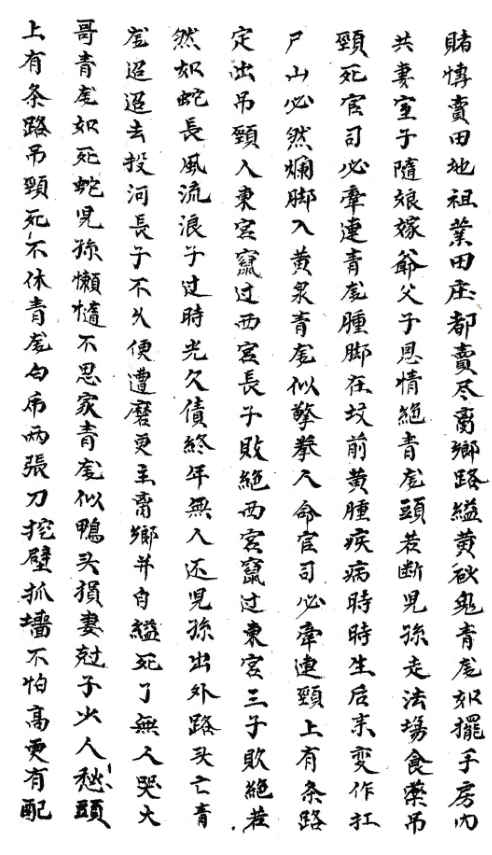 賭愽賣田地祖業田庄都賣尽离鄉路縊黄砂鬼青龙如擺手房内
共妻室子隨娘嫁爺父子恩情絶青龙頭若断児孫走法場食藥吊
頸死官司必牽連青龙腫脚在坟前黄腫疾病時時生后来变作扛
尸山必然爛脚入黄泉青龙似擎拳人命官司必牽連頸上有条路
定出吊頸人東宮竄过西宮長子敗絶西宮竄过東宮三子敗絶若
然如蛇長風流浪子过時光欠債終年無人还児孫出外路头亡青
龙迢迢去投河長子不久便遭磨更主离鄉并自縊死了無人哭大
哥青龙如死蛇児孫懶惰不思家青龙似鴨头損妻尅子少人愁頭
上有条路吊頸死不休青龙白虎两張刀挖壁抓墻不怕高更有配